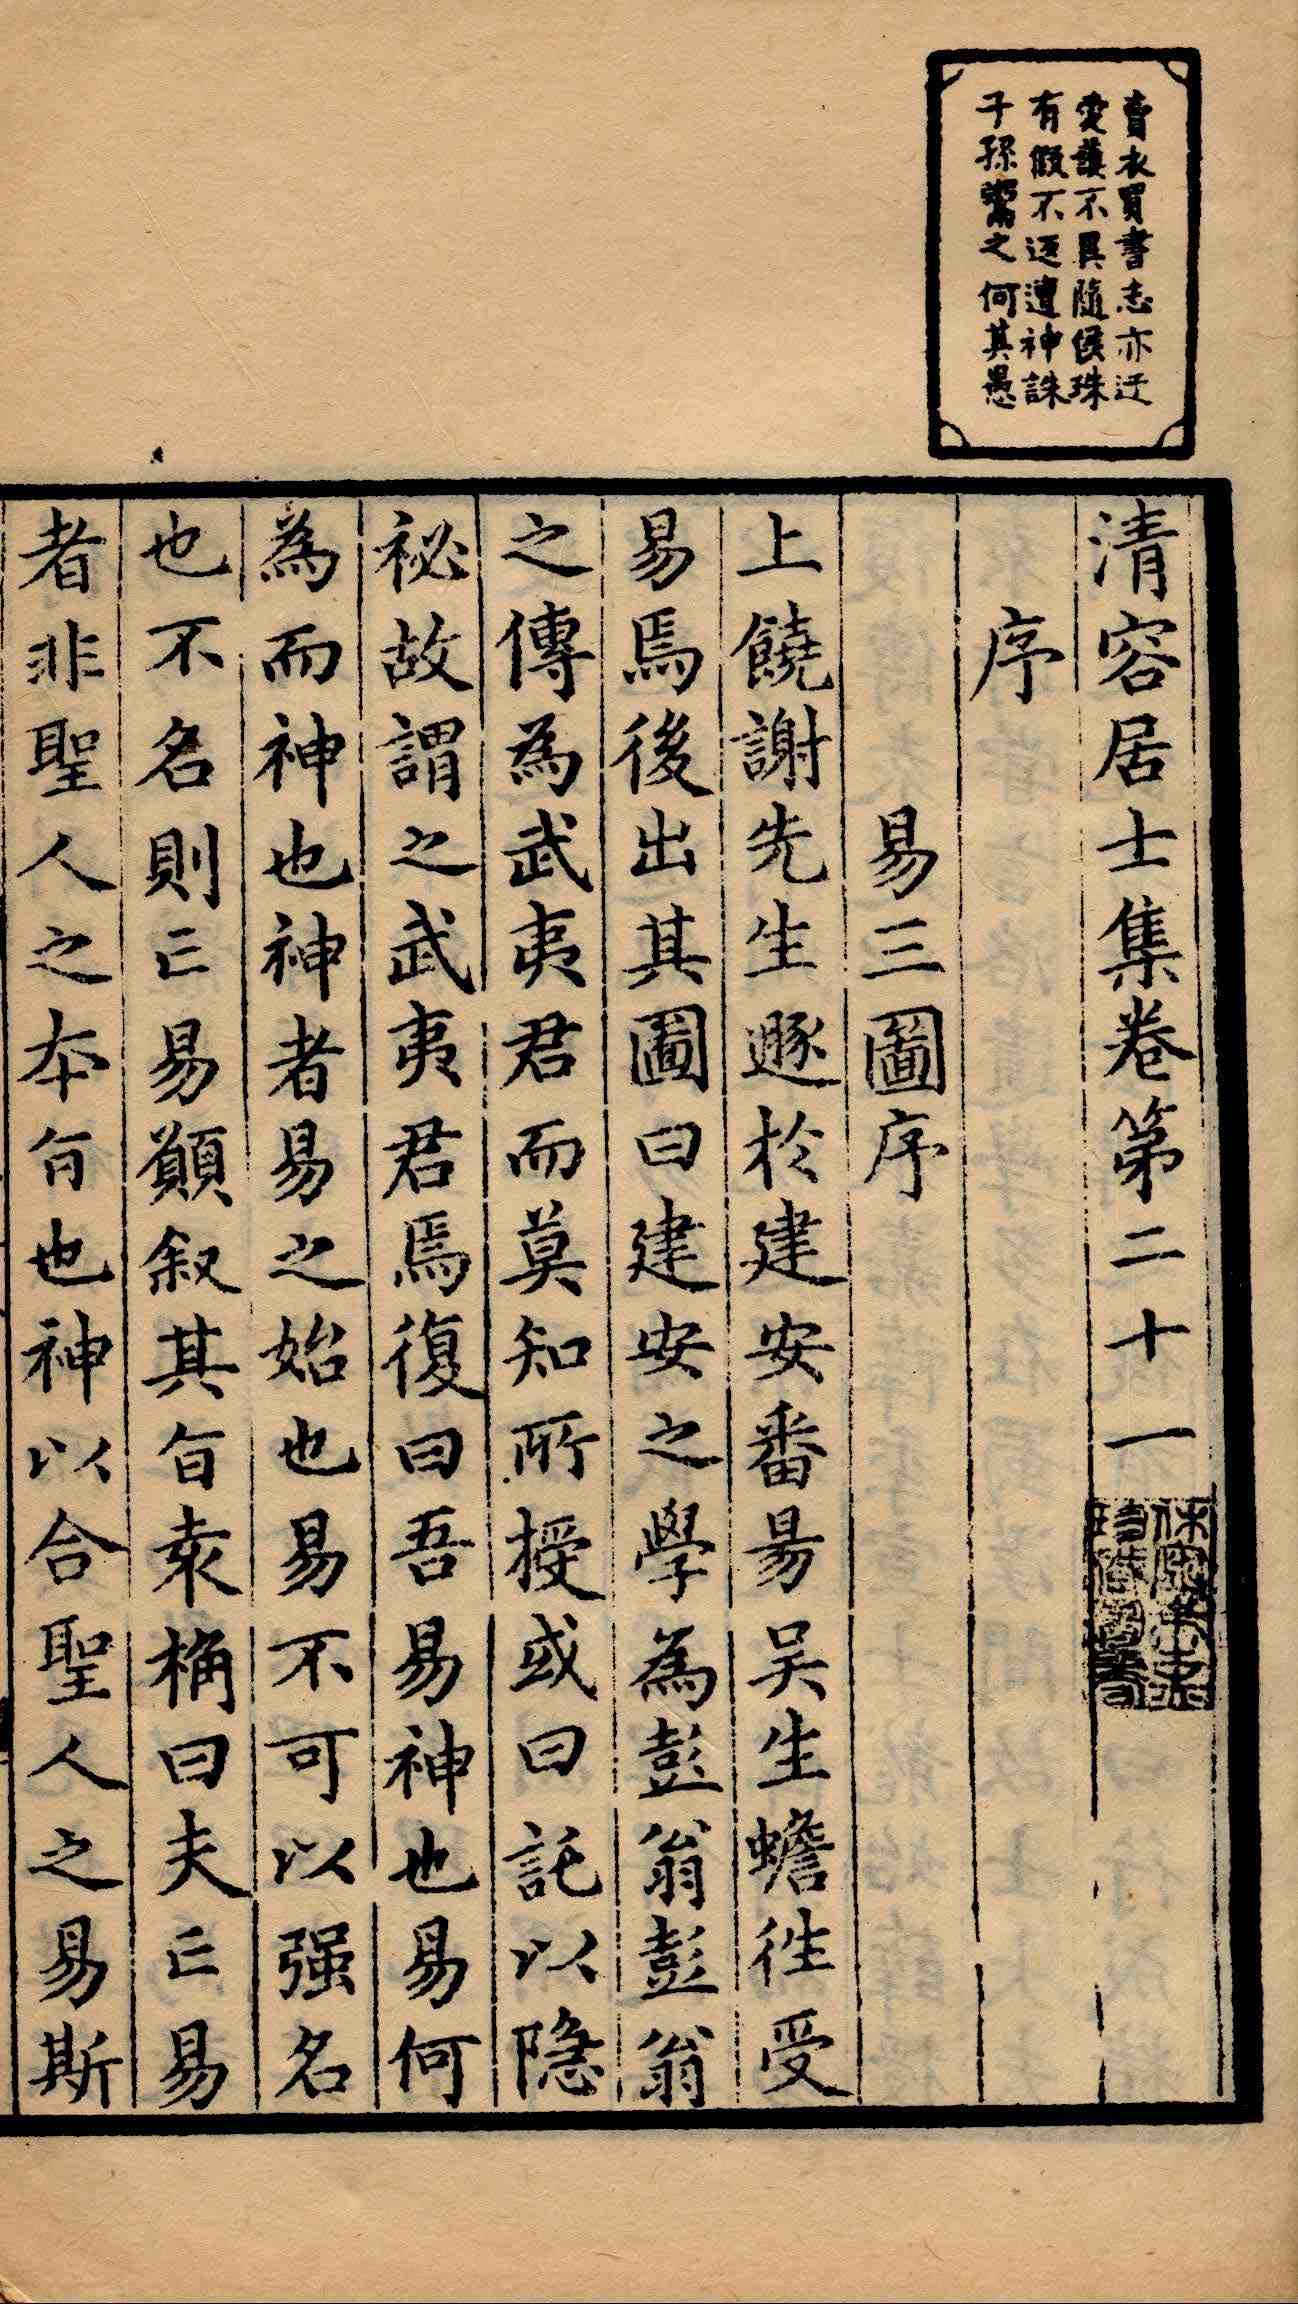 賣衣買書志亦迂
愛護不異隨侯珠
有假不返遭神誅
子孫鬻之何其愚
清容居士集卷第二十一
序
易三圖序
上饒謝先生遯於建安番昜吴生蟾徃受
易焉後出其圖曰建安之學為彭翁彭翁
之傳為武夷君而莫知所授或曰託以隐
祕故謂之武夷君焉復曰吾易神也易何
為而神也神者易之始也易不可以强名
也不名則亡易願叙其旨表桷曰夫亡易
者非聖人之本旨也神以合聖人之易斯